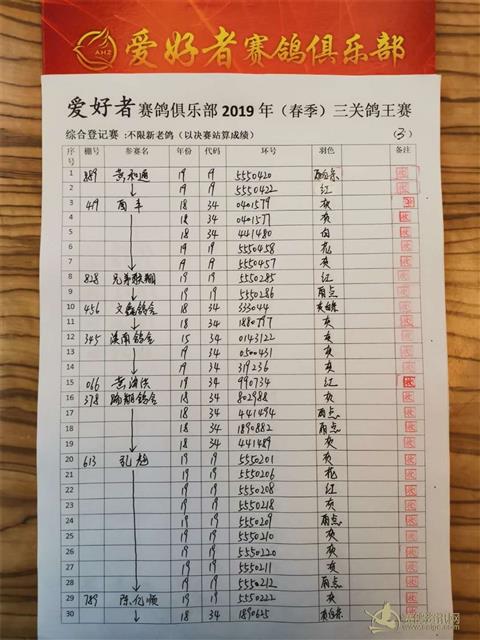 AHZ 爱好者赛鸽俱乐部
爱好者赛鸽俱乐部2019年（春季）三关鸽王赛
综合登记赛：不限新老鸽（以决赛站算成绩） (3)
序号 棚号 参赛名 年份 代码 环号 羽色 备注
1 889 19 19 5550420
2 ↓ 19 19 5550422 红
3 419 18 34 0401579 灰
4 18 34 0401577 灰
5 18 34 441480
6 19 19 5550458 花
7 19 19 5550457 灰
8 828 兄弟联翔 19 19 5550285 红
9 ↓ 19 19 5550286 雨点
10 456 文鑫鸽舍 18 34 333044 灰白条
11 ↓ 18 34 1880797 灰
12 345 滨南鸽舍 15 34 0143122 灰
13 19 34 0500431 灰
14 ↓ 19 34 319236 灰
15 066 19 34 990734 红
16 378 18 34 802988 灰
17 18 34 441494 雨点
18 18 34 1890882 雨点
19 18 34 441489 灰
20 613 孔超 19 19 5550201 灰
21 19 19 5550206 花
22 19 19 5550208 红
23 19 19 5550218 灰
24 19 19 5550209 雨点
25 19 19 5550210 灰
26 19 19 5550220 灰
27 19 19 5550211 灰
28 19 19 5550212 雨点
29 789 陈亿顺 19 19 5550222 灰
30 ↓ 18 34 1890625 灰白条